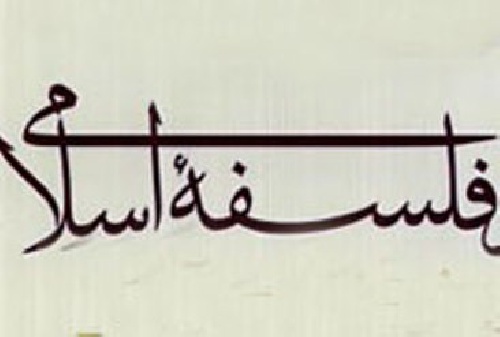 فلسفۀ اسلامی